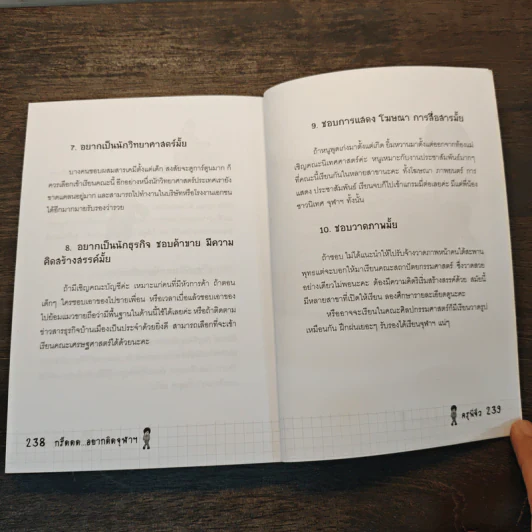 7. อยากเป็นนักวิทยาศาสตร์มั้ย
บางคนชอบผสมสารเคมีตั้งแต่เด็ก สงสัยจะดูการ์ตูนมาก ก็
ควรเลือกเข้าเรียนคณะนี้ อีกอย่างหนึ่งนักวิทยาศาสตร์ประเทศเรายัง
ขาดแคลนอยู่มาก และสามารถไปทำงานในบริษัทหรือโรงงานเอกชน
ได้อีกมากมายรับรองว่ารวย
8. อยากเป็นนักธุรกิจ ชอบค้าขาย มีความ
คิดสร้างสรรค์มั้ย
ถ้ามีเชิญคณะบัญชีค่ะ เหมาะแก่คนที่มีหัวการค้า ถ้าตอน
เด็กๆ ใครชอบเอาของไปขายเพื่อน หรือเวลาเบื่อแล้วชอบเอาของ
ไปย้อมแมวขายถือว่ามีพื้นฐานในด้านนี้ใช้ได้เลยค่ะ หรือถ้าติดตาม
ข่าวสารธุรกิจบ้านเมืองเป็นประจำด้วยยิ่งดี สามารถเลือกที่จะเข้า
เรียนคณะเศรษฐศาสตร์ได้ด้วยนะคะ
238 กรี๊ดดด...อยากติดจุฬาฯ
9. ชอบการแสดง โฆษณา การสื่อสารมั้ย
ถ้าหนูพูดเก่งมาตั้งแต่เกิด ยิ้มหวานมาตั้งแต่ออกจากท้องแม่
เชิญคณะนิเทศศาสตร์ค่ะ หนูเหมาะกับงานประชาสัมพันธ์มากๆ
ที่คณะนี้เรียนกันในหลายสาขานะคะ ทั้งโฆษณา ภาพยนตร์ การ
แสดง ประชาสัมพันธ์ เรียนจบก็ไปเข้าแกรมมี่ต่อเลยค่ะ มีแต่พี่น้อง
ชาวนิเทศ จุฬาฯ ทั้งนั้น
10. ชอบวาดภาพมั้ย
ถ้าชอบ ไม่ได้แนะนำให้ไปรับจ้างวาดภาพหน้าคนใต้สะพาน
พุทธแต่จะบอกให้มาเรียนคณะสถาปัตยกรรมศาสตร์ ซึ่งวาดสวย
อย่างเดียวไม่พอนะคะ ต้องมีความคิดริเริ่มสร้างสรรค์ด้วย สมัยนี้
มีหลายสาขาที่เปิดให้เรียน ลองศึกษารายละเอียดดูนะคะ
หรืออาจจะเรียนในคณะศิลปกรรมศาสตร์ก็มีเรียนวาดรูป
เหมือนกัน ฝึกฝนเยอะๆ รับรองได้เรียนจุฬาฯ แน่ๆ
ครูพี่จิ๋ว 239